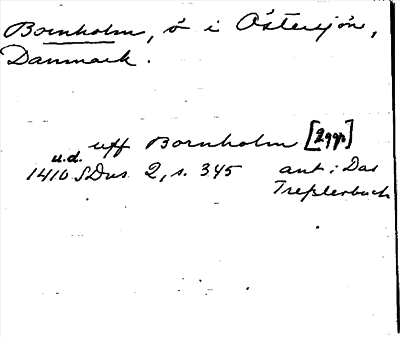 Bornholm, ö i Östersjön,
Danmark.
uff Bornholm [2 ggr]
u.d.
1410 SDns 2, s. 345 ant: Das
Treßlerbuch